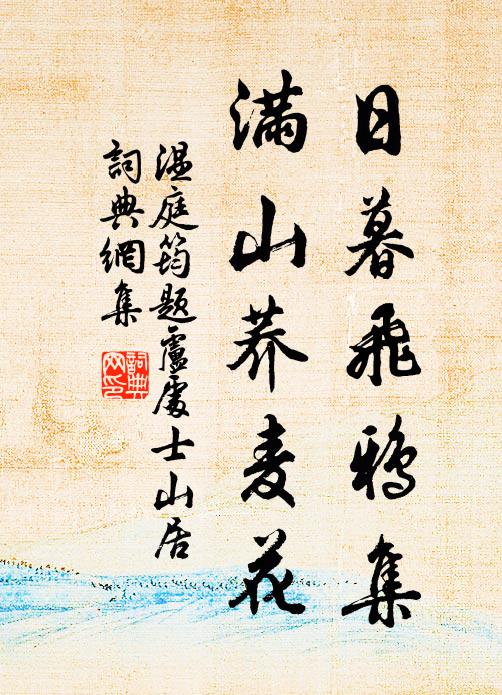 日暮飛鴉集
滿山蕎麦花
温庭筠題盧處士山居
詞典網集
詞典
网印